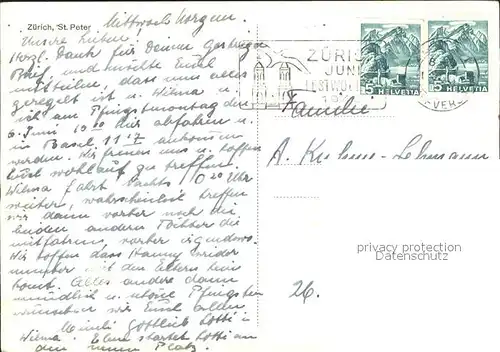 Zürich, St. Peter
Mittwoch Morgen.
Unsere Lieben!
Herzl. Dank für Deinen gestrigen
Brief, und möchte Euch
mitteilen, dass nun alles
geregelt ist u. Wilma u.
ich am Pfingstmontag den
6. Juni 10 20 hier abfahren u.
in Basel 11 17 ankommen
werden. Wir freuen uns u. hoffen
Euch wohlauf zu treffen.
Wilma fährt Nachts 10 20 Uhr
weiter, wahrscheinlich treffen
wir dann vorher noch die
beiden andern Töchter die
mitfahren, vorher irgendwo.
Wir hoffen dass Hanny wieder
munter mit den Eltern heim
kommt. Alles andere dann
mündlich u. schöne Pfingsten
wünschen wir Euch allen
Gottlieb Lotti u.
Wilma. startet Lotti an
den neuen Platz.
ZÜRICH
JUNI
FESTWOCHEN
5 HELVETIA
5 HELVETIA
Familie
A. Lehmann
26.
privacy protection
Datenschutz